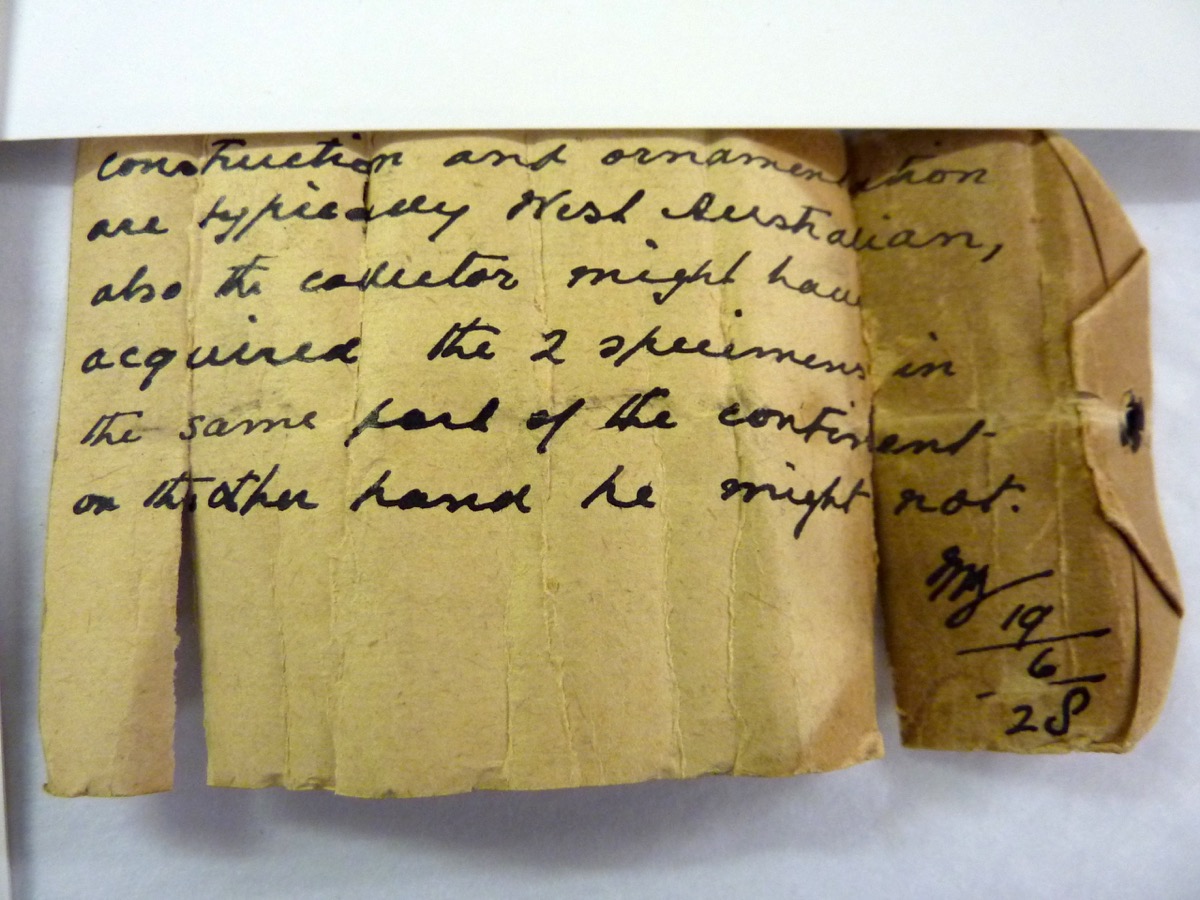 construction and ornamentation
are typically West Australian,
also the collector might have
acquired the 2 specimens in
the same part of the continent
on the other hand he might not.
19
6
28